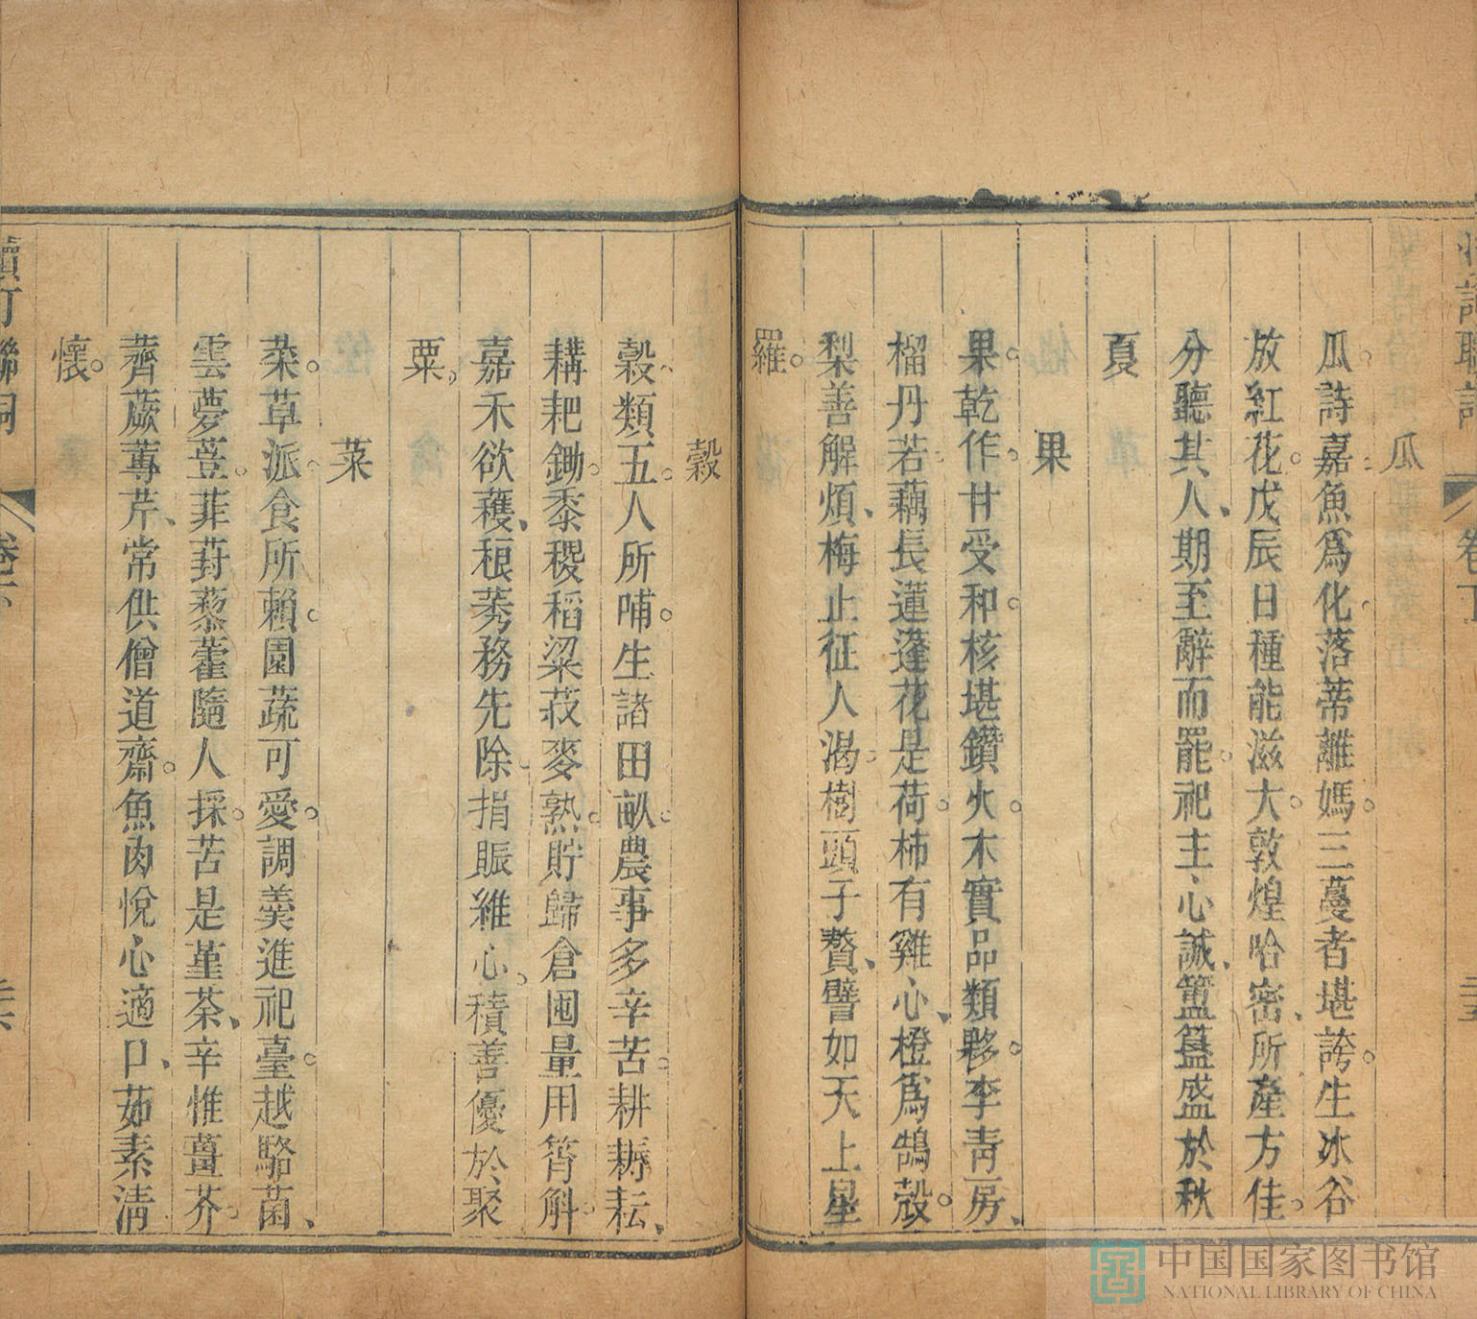 瓜
瓜詩嘉魚爲化落蒂離媽三蔓者堪誇生冰谷
放紅花戊辰日種能滋大敦煌哈密所產方佳
分聽其人期至辭而罷祀主心誠簠簋盛於秋
夏
果
果乾作甘受和核堪鑽火木實品類夥李靑房
榴丹若藕長蓮蓬花是荷柿有雞心橙爲鵠殼
梨善解煩梅止征人渴樹頭子贅譬如天上星
羅
穀
穀類五人所哺生諸田畝農事多辛苦耕耨耘
耩耙鋤黍稷稻粱菽麥熟貯歸倉囤量用筲斛
嘉禾欲穫稂莠務先除捐賑維心積善優於聚
粟
菜
菜草派食所賴園蔬可愛調羹進祀臺越駱菌
雲夢荳菲葑藜藿隨人採苦是堇荼辛惟薑芥
薺蕨蓴芹常供僧道齋魚肉悅心適口茹素淸
懷
卷下
中国国家图书馆
NATIONAL LIBRARY OF CHINA